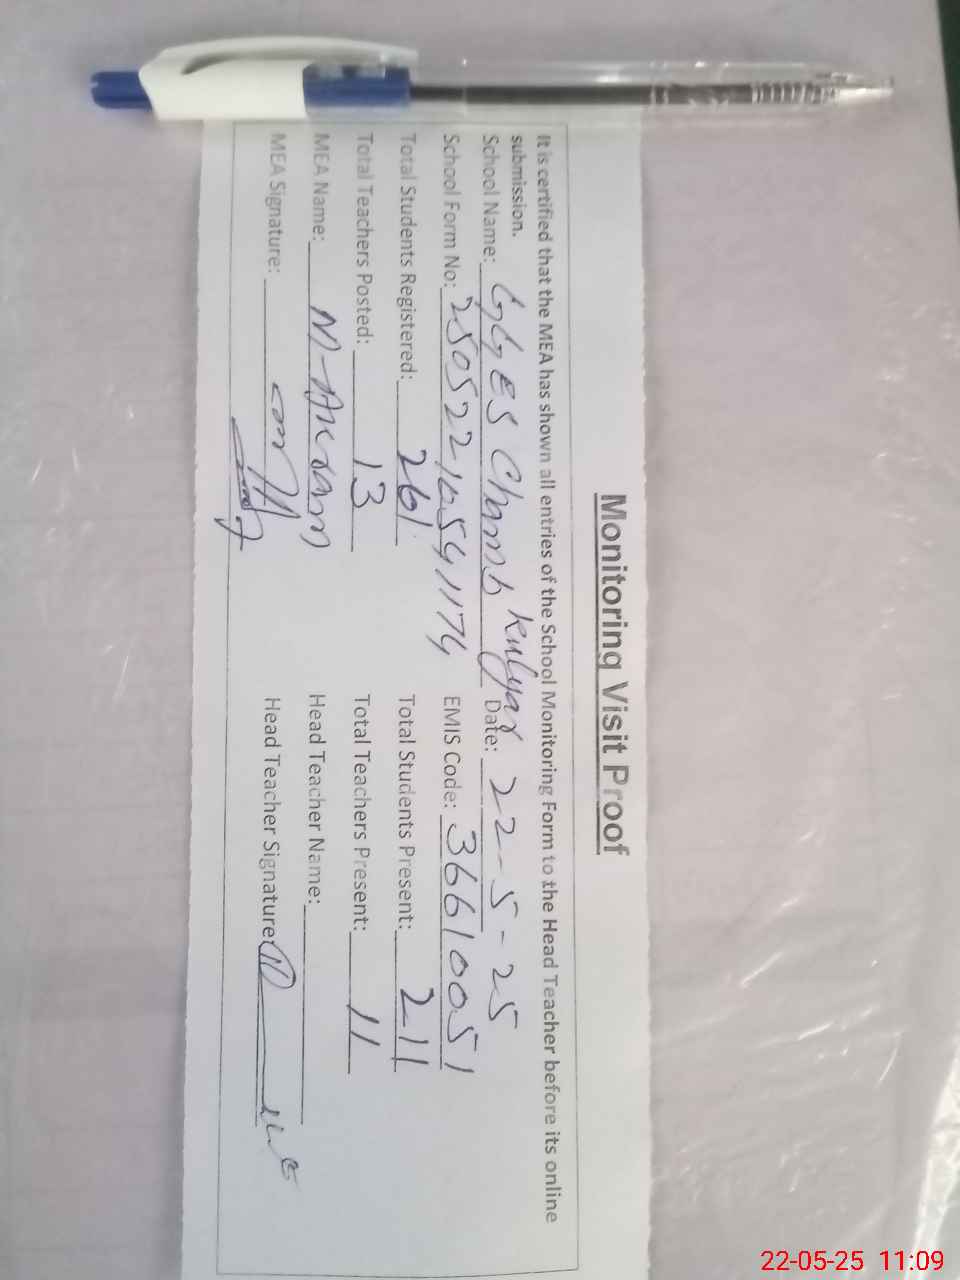 Monitoring Visit Proof
It is certified that the MEA has shown all entries of the School Monitoring Form to the Head Teacher before its online
submission.
School Name: GGES Chamb Kulyar Date: 22-5-25
School Form No: 280522105941174 EMIS Code: 36610051
Total Students Registered: 261 Total Students Present: 211
Total Teachers Posted: 13 Total Teachers Present: 11
MEA Name: M-Ahsan Head Teacher Name:
MEA Signature: Head Teacher Signature:
22-05-25 11:09